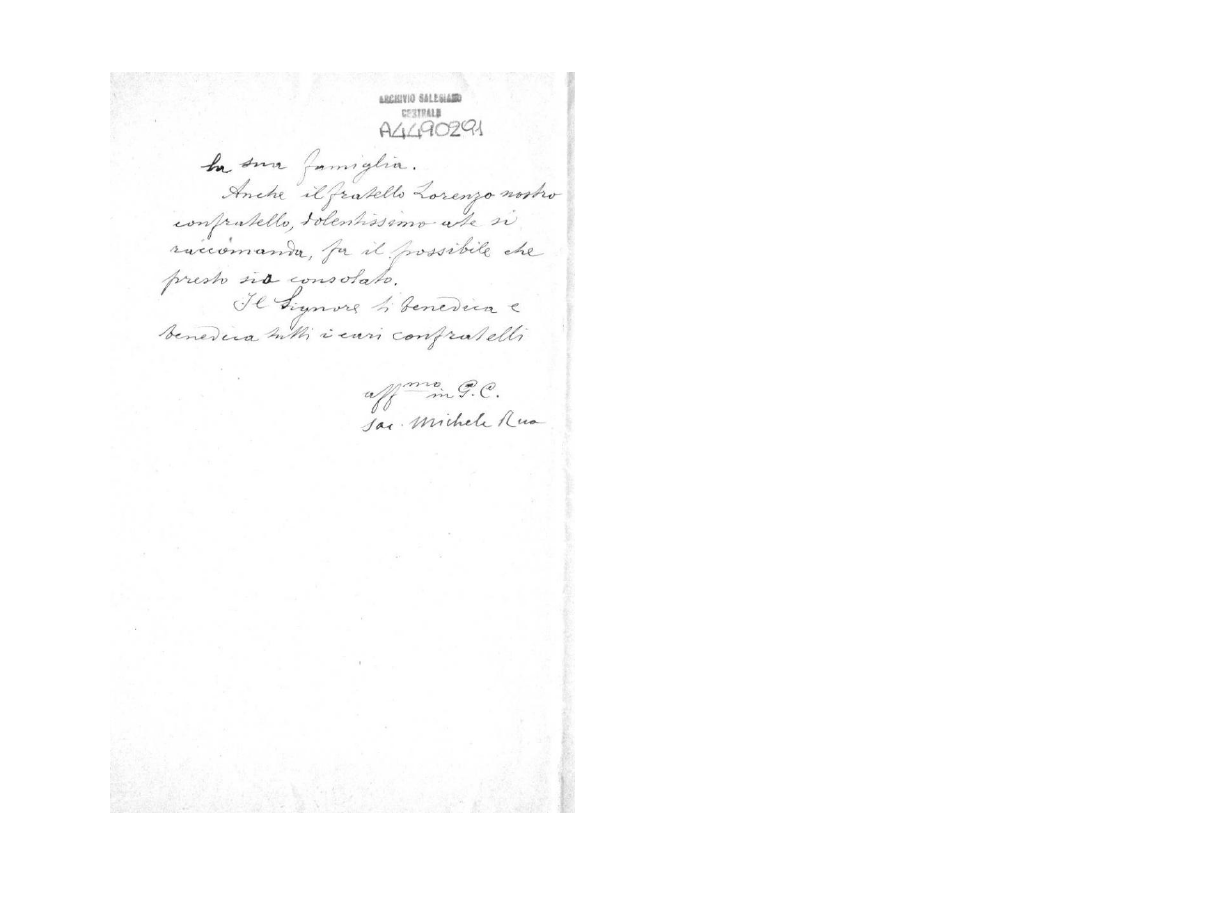 ARCHIVIO SALESIANO
CENTRALE
A4490291
la sua famiglia.
Anche il fratello Lorenzo nostro
confratello, dolentissimo a te si
raccomanda, fa il possibile che
presto sia consolato.
Il Signore ti benedica e
benedica tutti i cari confratelli
aff.mo in G. C.
Sac. Michele Rua